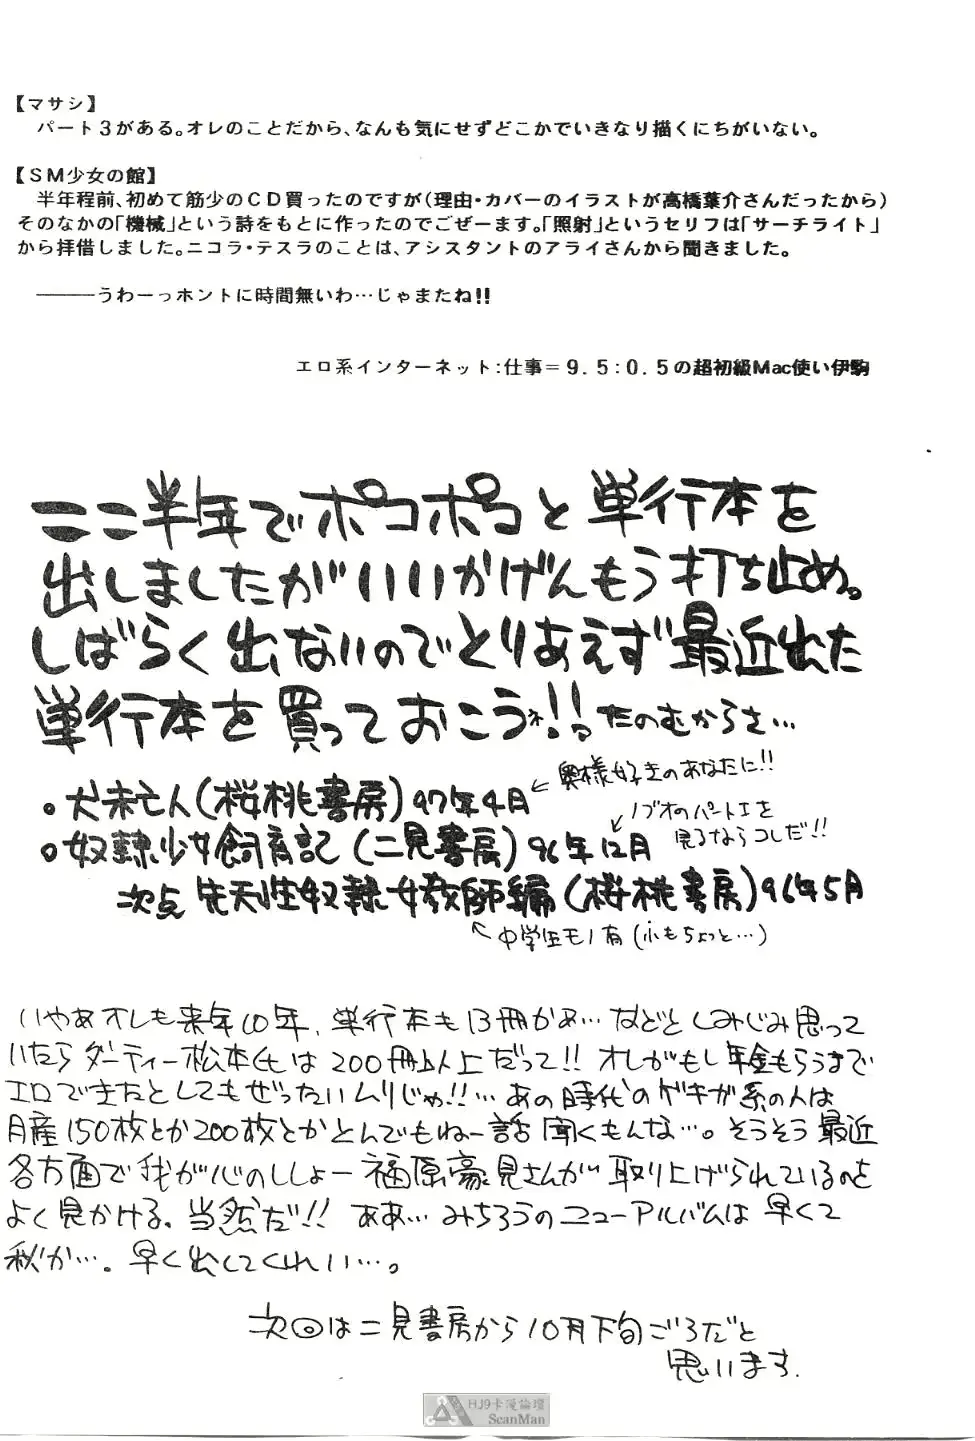 【マサシ】
パート３がある。オレのことだから、なんも気にせずどこかでいきなり描くにちがいない。
【ＳＭ少女の館】
半年程前、初めて筋少のＣＤ買ったのですが（理由・カバーのイラストが高橋葉介さんだったから）
そのなかの「機械」という詩をもとに作ったのでごぜーます。「照射」というセリフは「サーチライト」
から拝借しました。ニコラ・テスラのことは、アシスタントのアライさんから聞きました。
――――うわーっホントに時間無いわ…じゃまたね!!
エロ系インターネット：仕事＝９．５：０．５の超初級Mac使い伊駒
ここ半年でポコポコと単行本を
出しましたがいいかげんもう打ち止め。
しばらく出ないのでとりあえず最近出た
単行本を買っておこうネ!!っ たのむからさ…
。犬未亡人(桜桃書房)97年4月 ←奥様好きのあなたに!!
。奴隷少女飼育記(二見書房)96年12月
ノブオのパートⅠを
見るならコレだ!!
次点 先天性奴隷女教師編(桜桃書房)96年5月
↖中学生モノ有(ふもちょっと…)
いやあオレも来年10年、単行本も13冊かぁ…などとしみじみ思って
いたらダーティー松本氏は200冊以上だって!! オレがもし年金もらうまで
エロできたとしてもぜったいムリじゃ!!…あの時代のゲキガ系の人は
月産150枚とか200枚とかとんでもねー話聞くもんな…。そうそう最近
各方面で我が心のししょー福原豪見さんが取り上げられているのを
よく見かける。当然だ!! ああ…みちろうのニューアルバムは早くて
秋か…。早く出してくれい…。
次回は二見書房から10月下旬ごろだと
思います.
HJ9卡漫論壇
ScanMan